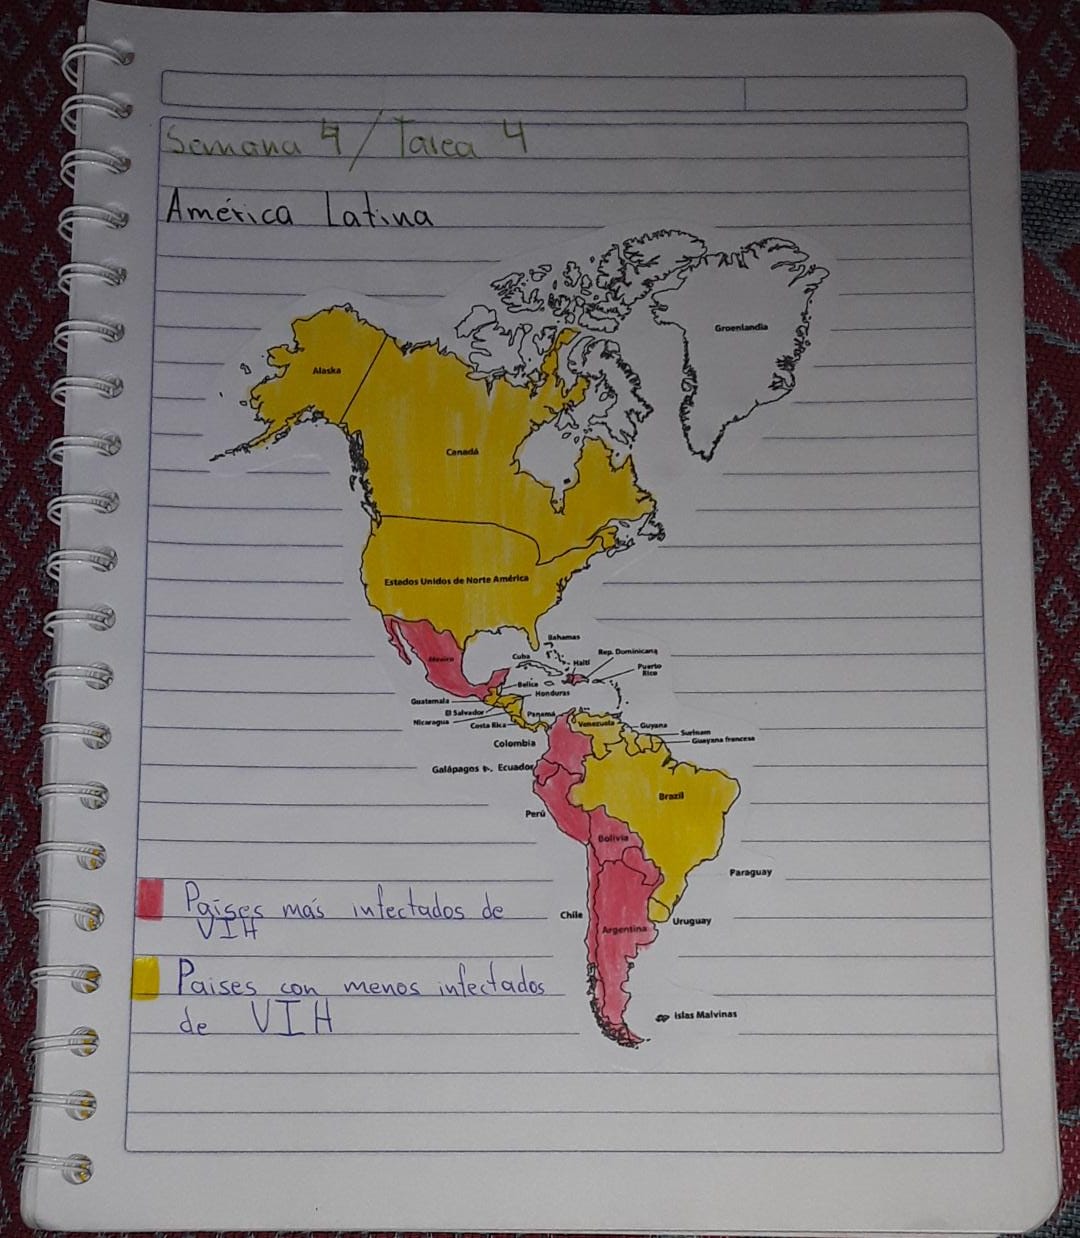 Semana 4 / Tarea 4
América Latina
Groenlandia
Alaska
Canadá
Estados Unidos de Norte América
Bahamas
México
Cuba
Haití
Rep. Dominicana
Puerto
Rico
Belice
Guatemala
Honduras
El Salvador
Nicaragua
Costa Rica
Panamá
Venezuela
Guyana
Surinam
Guayana francesa
Colombia
Galápagos
Ecuador
Brazil
Perú
Bolivia
Paraguay
Chile
Uruguay
Argentina
Islas Malvinas
Paises más infectados de
VIH
Paises con menos infectados
de VIH